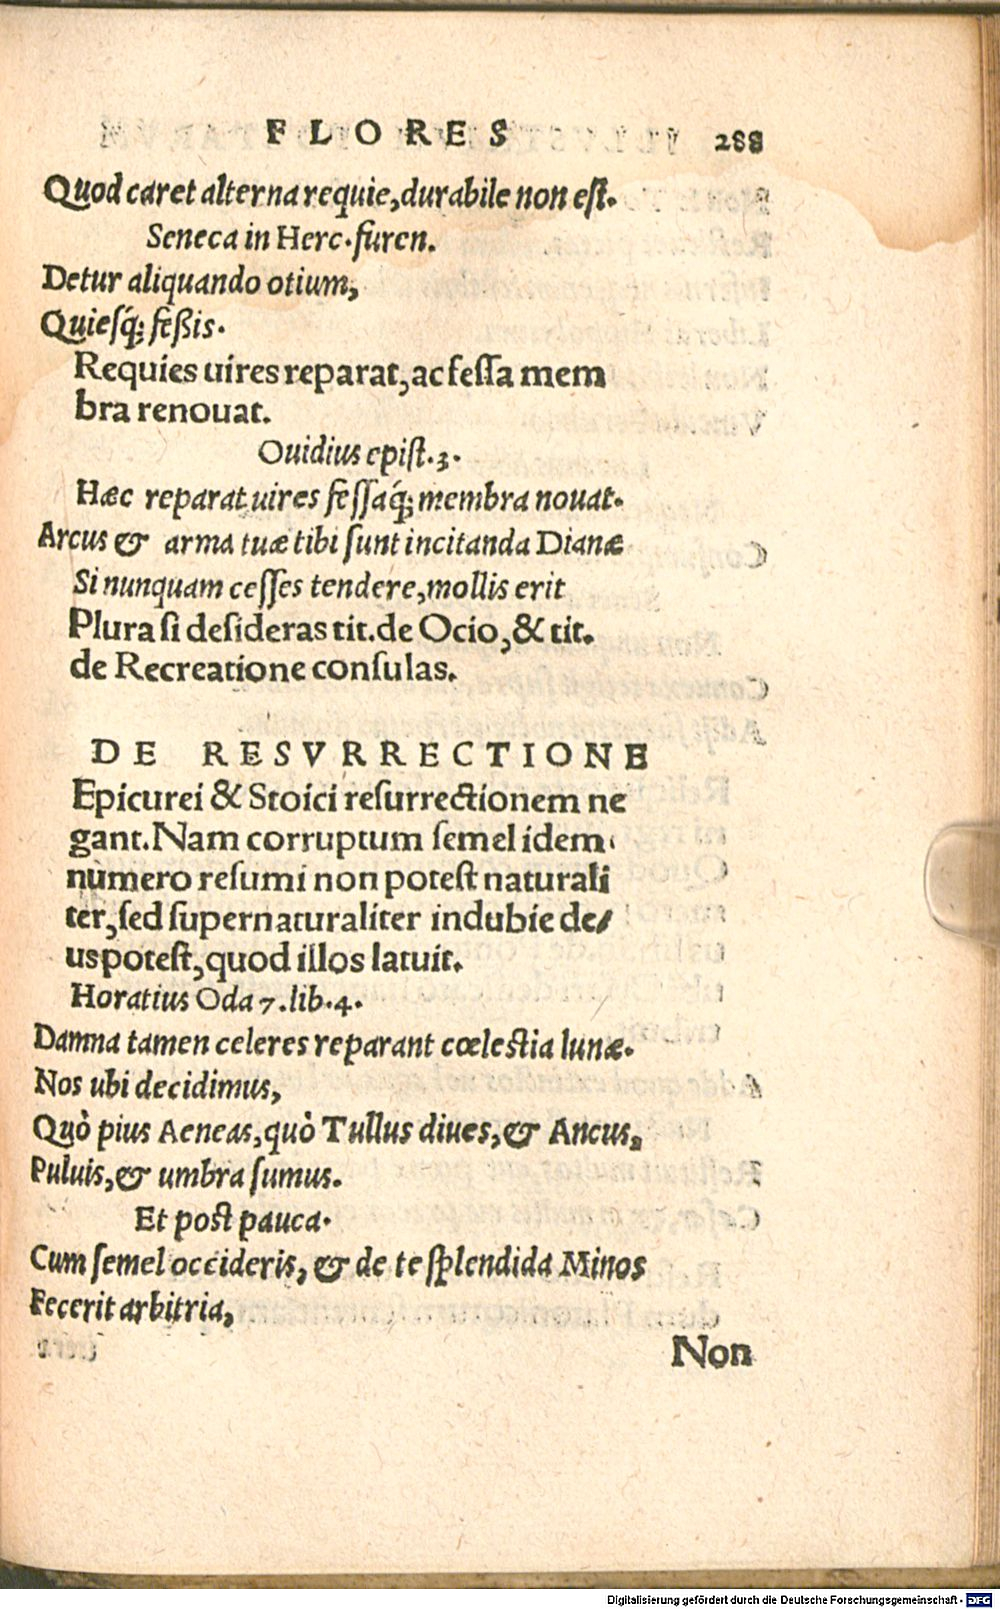 FLORES 288
Quod caret alterna requie, durabile non est.
Seneca in Herc. furen.
Detur aliquando otium,
Quiesq́; feßis.
Requies uires reparat, ac fessa mem
bra renouat.
Ouidius epist. 3.
Hæc reparat uires fessaq́; membra nouat.
Arcus & arma tuæ tibi sunt incitanda Dianæ
Si nunquam cesses tendere, mollis erit
Plura si desideras tit. de Ocio, & tit.
de Recreatione consulas.
DE RESVRRECTIONE
Epicurei & Stoici resurrectionem ne
gant. Nam corruptum semel idem
numero resumi non potest naturali
ter, sed supernaturaliter indubie de/
us potest, quod illos latuit.
Horatius Oda 7. lib. 4.
Damna tamen celeres reparant cœlestia lunæ.
Nos ubi decidimus,
Quò pius Aeneas, quò Tullus diues, & Ancus,
Puluis, & umbra sumus.
Et post pauca.
Cum semel occideris, & de te splendida Minos
Fecerit arbitria,
Non
Digitalisierung gefördert durch die Deutsche Forschungsgemeinschaft - DFG